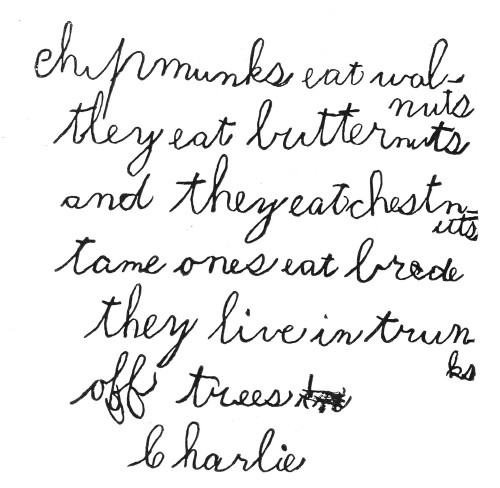 chipmunks eat wal-
nuts
they eat butternuts
and they eat chestn-
uts
tame ones eat brede
they live in trun
ks
off trees
Charlie